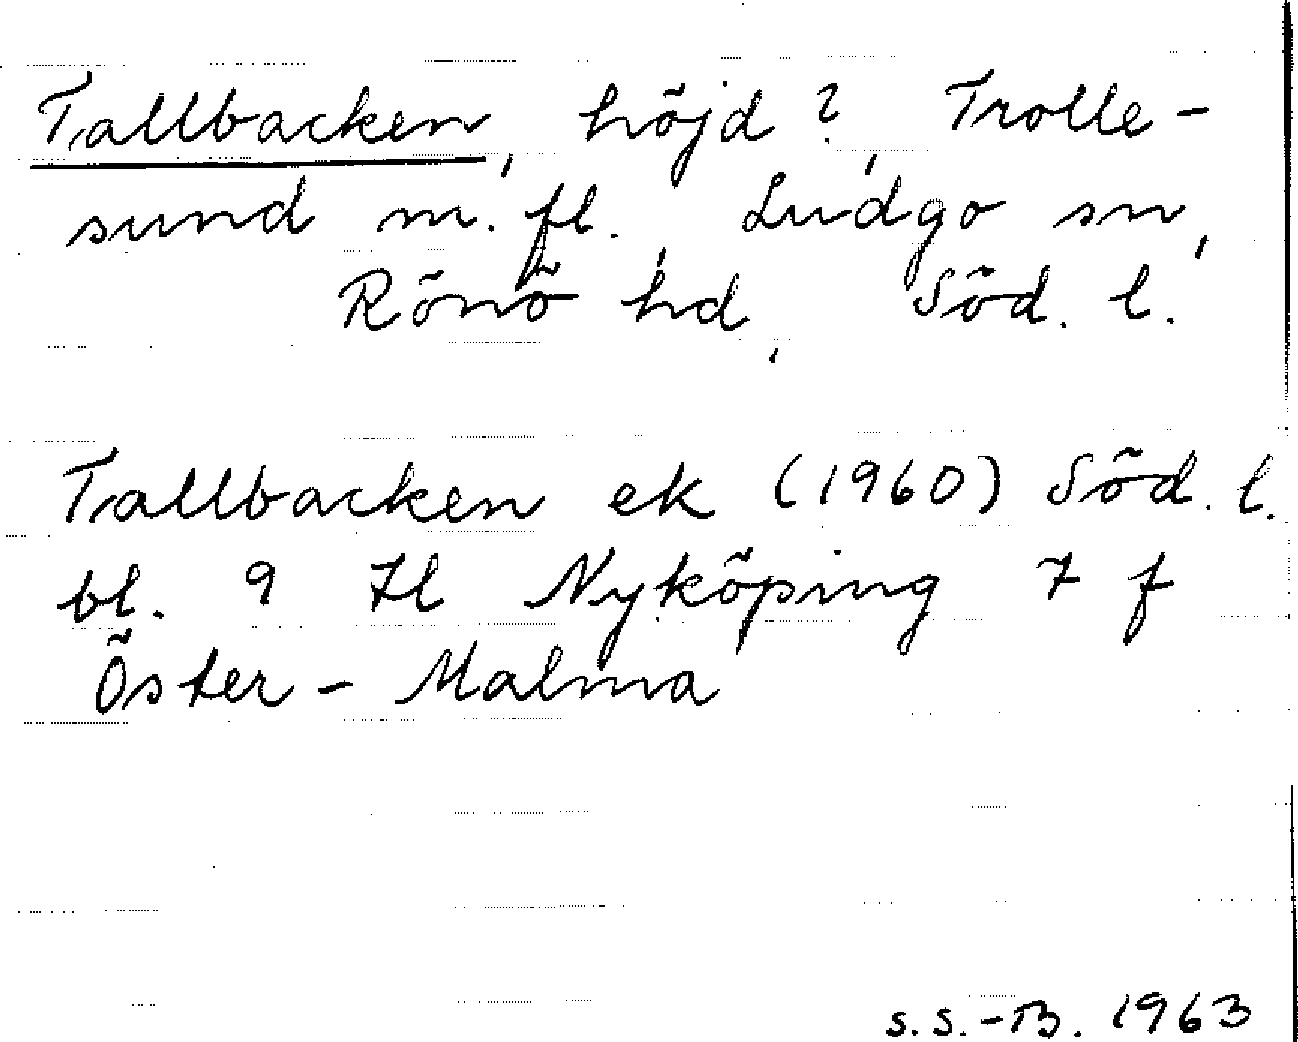 Tallbacken, höjd?, Trolle-
sund m. fl., Ludgo sn,
Rönö hd, Söd. l.
Tallbacken ek (1960) Söd. l.
bl. 9 Il Nyköping 7 f
Öster-Malma
s.s.-B. 1963